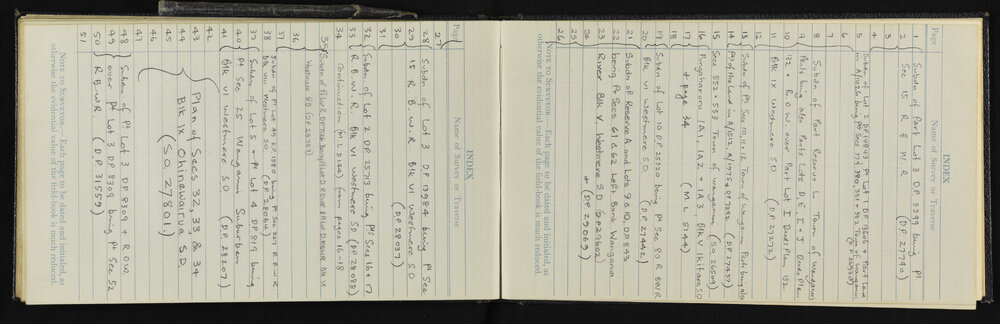 INDEX
Page Name of Survey or Traverse
1 Subdn of Part Lot 3 DP 3399 being Pt
2 Sec 15 R B W R (DP 27790)
3
4
5 Subdn of Lot 2 DP 14843 Pt Lot 1 DP 13606 + Part Land
6 in A/1426 being Pts Secs 379, 380, 381 + 382 Town of Wanganui
7
8 Subdn of Part Reserve L Town of Wanganui
9 Parts being also Parts Lots D E I + J Deeds Plan
10 132 + R.O.W. over Part Lot I Deeds Plan 132
11 Blk IX Westmere S D (DP 27273)
12
13 Subdn of Pts Sec 10, 11 + 12 Town of Wanganui Parts being also
14 Pts of the land in (DP 27437)
15 Secs 552 + 558 Town of Wanganui (SO 26809)
16 Pungaharuru 1A1, 1A2 + 1A3, Blk V Ikitara SD
17 + page 34 (ML 5144)
18
19 Subdn of Lot 10 DP 25520 being Pt Sec 80 R BWR
20 Blk VI Westmere SD (DP 27442)
21 Subdn of Reserve A and Lots 9 & 10, DP 843
22 being Pt Secs 61 & 62 Left Bank Wanganui
23 River Blk V Westmere SD (DP 29602)
24 + (DP 29069)
25
26
NOTE TO SURVEYOR.— Each page to be dated and initialed, as
otherwise the evidential value of the field-book is much reduced.
INDEX
Page Name of Survey or Traverse
27
28 Subdn of Lot 3 DP 13984 being Pt Sec
29 15 R B. W. R. Blk VI Westmere SD
30 (DP 28037)
31
32 Subdn of Lot 2 DP 25713 being Pts Secs 16 + 17
33 R B W R. Blk VI Westmere SD (DP 28088)
34 Continuation (ML 5144) from pages 16-18
35
Westmere SD (DP 28757)
36
37
38 Subdn of Pt Lot 49 DP 1580 being Pt Sec
39 Blk VIII Westmere SD (DP 28064)
Subdn of Lot 5 + Pt Lot 4 DP 819 being
40 Pt Sec 25 Wanganui Suburban
41 Blk VI Westmere SD (DP 28207)
42
43 Plan of Secs 32, 33, & 34
44 Blk IX Ohinewairua SD.
45 (SO 27801)
46
47
48 Subdn of Pt Lot 3 DP 8309 + R O W
49 over Pt Lot 3 DP 8309 being Pt Sec 52
50 R B W R (DP 31559)
51
NOTE TO SURVEYOR.— Each page to be dated and initialed, as
otherwise the evidential value of the field-book is much reduced.